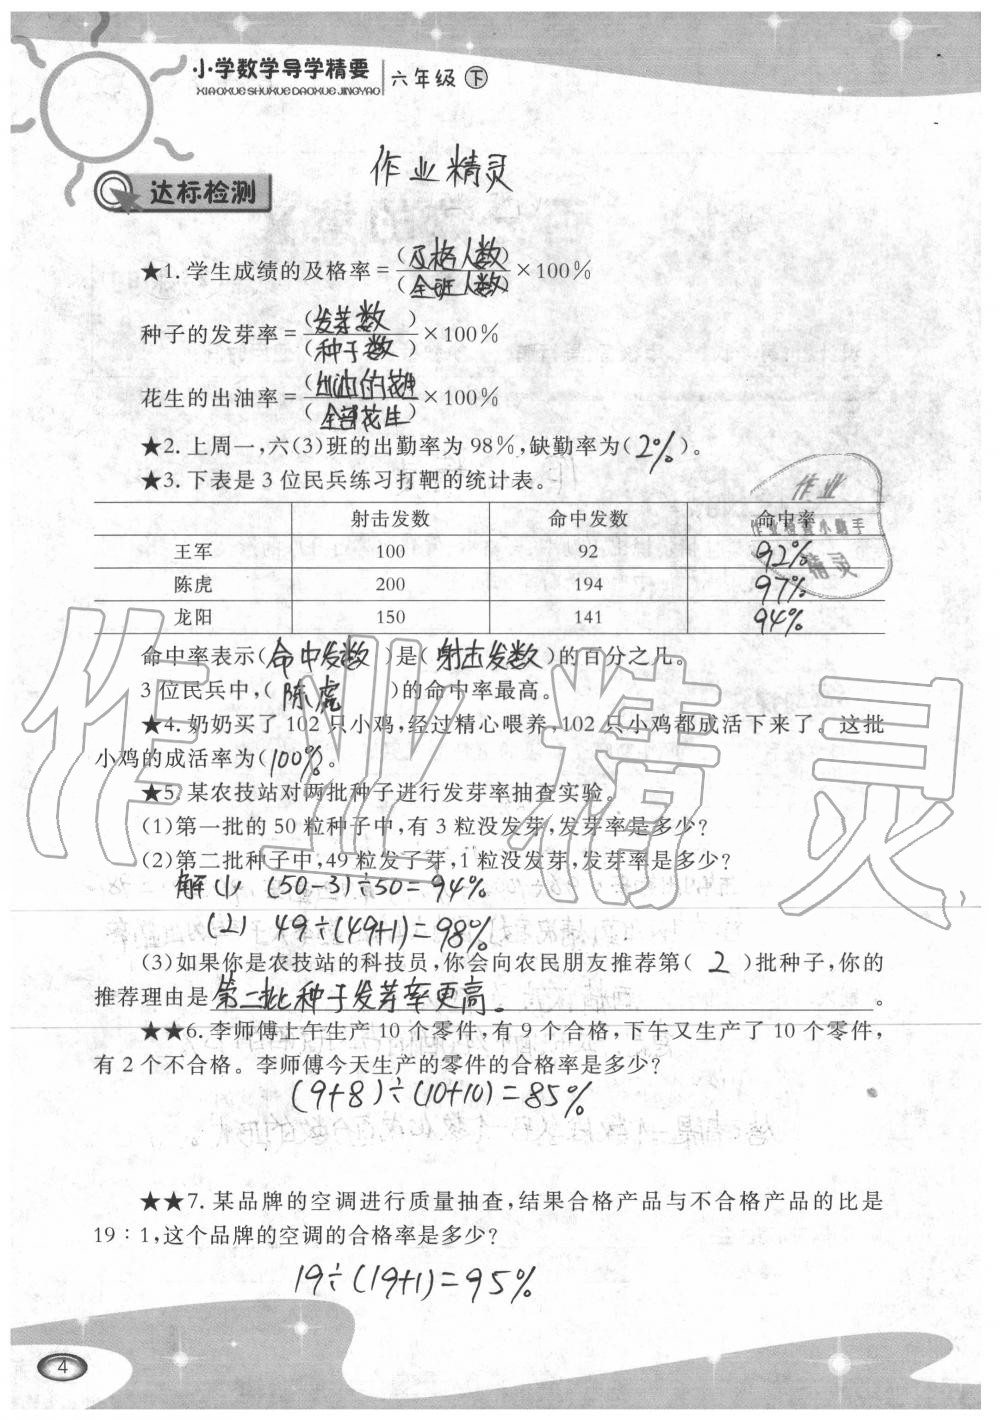 小学数学导学精要 六年级 下
XIAOXUE SHUXUE DAOXUE JINGYAO
作业精灵
达标检测
★1.学生成绩的及格率=(及格人数)/(全班人数)×100%
种子的发芽率=(发芽数)/(种子数)×100%
花生的出油率=(出油的花生)/(全部花生)×100%
★2.上周一,六(3)班的出勤率为98%,缺勤率为(2%)。
★3.下表是3位民兵练习打靶的统计表。
射击发数 命中发数 命中率
王军 100 92 92%
陈虎 200 194 97%
龙阳 150 141 94%
作业
作业检查小助手
精灵
命中率表示(命中发数)是(射击发数)的百分之几。
3位民兵中,(陈虎)的命中率最高。
★4.奶奶买了102只小鸡,经过精心喂养,102只小鸡都成活下来了。这批
小鸡的成活率为(100%)。
★5.某农技站对两批种子进行发芽率抽查实验。
(1)第一批的50粒种子中,有3粒没发芽,发芽率是多少?
(2)第二批种子中,49粒发了芽,1粒没发芽,发芽率是多少?
解(1) (50-3)÷50=94%
(2) 49÷(49+1)=98%
(3)如果你是农技站的科技员,你会向农民朋友推荐第(2)批种子,你的
推荐理由是第二批种子发芽率更高。
★★6.李师傅上午生产10个零件,有9个合格,下午又生产了10个零件,
有2个不合格。李师傅今天生产的零件的合格率是多少?
(9+8)÷(10+10)=85%
★★7.某品牌的空调进行质量抽查,结果合格产品与不合格产品的比是
19∶1,这个品牌的空调的合格率是多少?
19÷(19+1)=95%
4
作业精灵